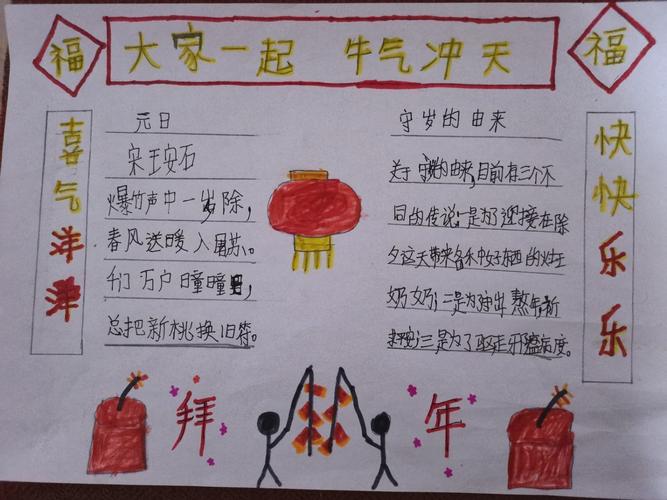 福
大家一起 牛气冲天
福
喜气洋洋
元日
宋王安石
爆竹声中一岁除，
春风送暖入屠苏。
千门万户曈曈，
总把新桃换旧符。
守岁的由来
关于守岁的由来，目前有三个不
同的传说：一是为了迎接在除
夕这天带来各种好东西的灶王
奶奶；二是为
三是为了驱走邪瘟病疫。
快快乐乐
拜年